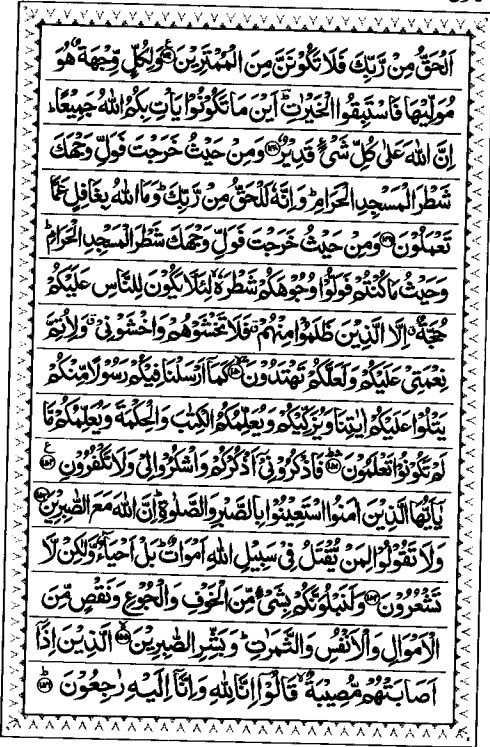 اَلۡحَقُّ مِنۡ رَّبِّكَ فَلَا تَكُوۡنَنَّ مِنَ الۡمُمۡتَرِيۡنَ ﴿۱۴۷﴾ وَلِكُلٍّ وِّجۡهَةٌ هُوَ
مُوَلِّيۡهَا فَاسۡتَبِقُوا الۡخَيۡرٰتِ ؕ اَيۡنَ مَا تَكُوۡنُوۡا يَاۡتِ بِكُمُ اللّٰهُ جَمِيۡعًا ؕ
اِنَّ اللّٰهَ عَلٰى كُلِّ شَىۡءٍ قَدِيۡرٌ ﴿۱۴۸﴾ وَمِنۡ حَيۡثُ خَرَجۡتَ فَوَلِّ وَجۡهَكَ
شَطۡرَ الۡمَسۡجِدِ الۡحَرَامِ ؕ وَاِنَّهٗ لَلۡحَقُّ مِنۡ رَّبِّكَ ؕ وَمَا اللّٰهُ بِغَافِلٍ عَمَّا
تَعۡمَلُوۡنَ ﴿۱۴۹﴾ وَمِنۡ حَيۡثُ خَرَجۡتَ فَوَلِّ وَجۡهَكَ شَطۡرَ الۡمَسۡجِدِ الۡحَرَامِ ؕ
وَحَيۡثُ مَا كُنۡتُمۡ فَوَلُّوۡا وُجُوۡهَكُمۡ شَطۡرَهٗ ۙ لِئَلَّا يَكُوۡنَ لِلنَّاسِ عَلَيۡكُمۡ
حُجَّةٌ ۙ اِلَّا الَّذِيۡنَ ظَلَمُوۡا مِنۡهُمۡ ۗ فَلَا تَخۡشَوۡهُمۡ وَاخۡشَوۡنِىۡ ۗ وَلِاُتِمَّ
نِعۡمَتِىۡ عَلَيۡكُمۡ وَلَعَلَّكُمۡ تَهۡتَدُوۡنَ ﴿۱۵۰﴾ كَمَآ اَرۡسَلۡنَا فِيۡكُمۡ رَسُوۡلًا مِّنۡكُمۡ
يَتۡلُوۡا عَلَيۡكُمۡ اٰيٰتِنَا وَيُزَكِّيۡكُمۡ وَيُعَلِّمُكُمُ الۡكِتٰبَ وَالۡحِكۡمَةَ وَيُعَلِّمُكُمۡ مَّا
لَمۡ تَكُوۡنُوۡا تَعۡلَمُوۡنَ ﴿۱۵۱﴾ فَاذۡكُرُوۡنِىۡٓ اَذۡكُرۡكُمۡ وَاشۡكُرُوۡا لِىۡ وَلَا تَكۡفُرُوۡنِ ﴿۱۵۲﴾
يٰٓاَيُّهَا الَّذِيۡنَ اٰمَنُوا اسۡتَعِيۡنُوۡا بِالصَّبۡرِ وَالصَّلٰوةِ ؕ اِنَّ اللّٰهَ مَعَ الصّٰبِرِيۡنَ ﴿۱۵۳﴾
وَلَا تَقُوۡلُوۡا لِمَنۡ يُّقۡتَلُ فِىۡ سَبِيۡلِ اللّٰهِ اَمۡوَاتٌ ؕ بَلۡ اَحۡيَآءٌ وَّلٰكِنۡ لَّا
تَشۡعُرُوۡنَ ﴿۱۵۴﴾ وَلَنَبۡلُوَنَّكُمۡ بِشَىۡءٍ مِّنَ الۡخَوۡفِ وَالۡجُوۡعِ وَنَقۡصٍ مِّنَ
الۡاَمۡوَالِ وَالۡاَنۡفُسِ وَالثَّمَرٰتِ ؕ وَبَشِّرِ الصّٰبِرِيۡنَ ﴿۱۵۵﴾ الَّذِيۡنَ اِذَآ
اَصَابَتۡهُمۡ مُّصِيۡبَةٌ ۙ قَالُوۡٓا اِنَّا لِلّٰهِ وَاِنَّآ اِلَيۡهِ رٰجِعُوۡنَ ؕ ﴿۱۵۶﴾